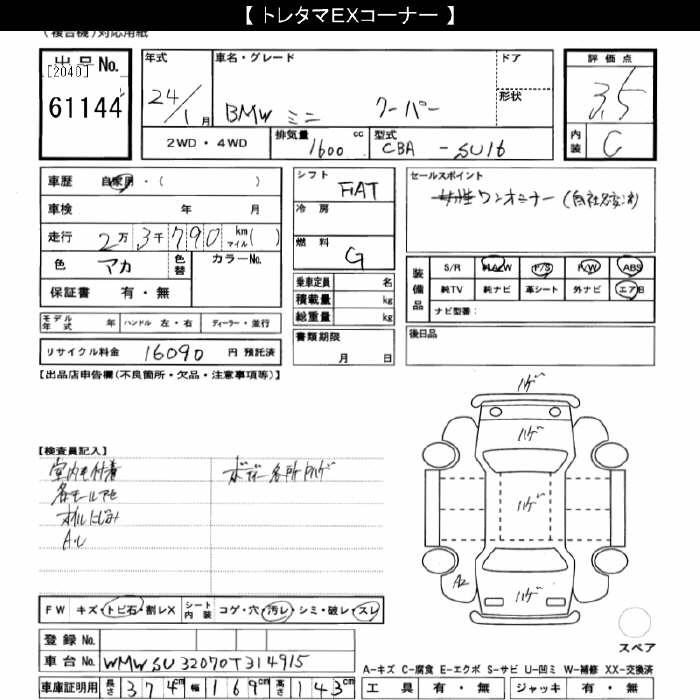 【 トレタマEXコーナー 】
(複合機)対応用紙
出品No. 年式 車名・グレード ドア 評価点
[2040]
61144 24/1月 BMW ミニ クーパー 形状 3.5
2WD・4WD 排気量 1600 cc 型式 CBA - SU16 内装 C
車歴 自家用・( ) シフト FAT セールスポイント
車検 年 月 冷房 女性ワンオーナー(自社名変済)
走行 2万3千790 km マイル( ) 燃料 G
色 アカ 色替 カラーNo. 乗車定員 名 装備品 S/R P/S P/W ABS
保証書 有・無 積載量 kg 純TV 純ナビ 革シート 外ナビ エアB
総重量 kg ナビ型番:
モデル年式 年 ハンドル 左・右 ディーラー・並行 書類期限 月 日 後日品
リサイクル料金 16090 円 預託済
【出品店申告欄(不良箇所・欠品・注意事項等)】
ハゲ
ハゲ
【検査員記入】
室内毛付着 ボデー各所ハゲ
各モールアセ
オイルにじみ ハゲ
A・U
A2 ハゲ
FW キズ・トビ石・割レX シート内装 コゲ・穴・汚レ・シミ・破レ・スレ
スペア
登録No.
車台No. WMWSU32070T314915
A-キズ C-腐食 E-エクボ S-サビ U-凹ミ W-補修 XX-交換済
車庫証明用 長さ 374cm 幅 169cm 高さ 143cm 工具 有・無 ジャッキ 有・無